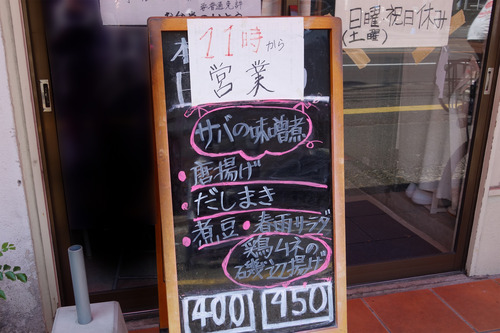 11時から
営業
サバの味噌煮
・唐揚げ
・だしまき
・煮豆・春雨サラダ
鶏ムネの
磯辺揚げ
400 450
日曜祝日休み
(土曜)